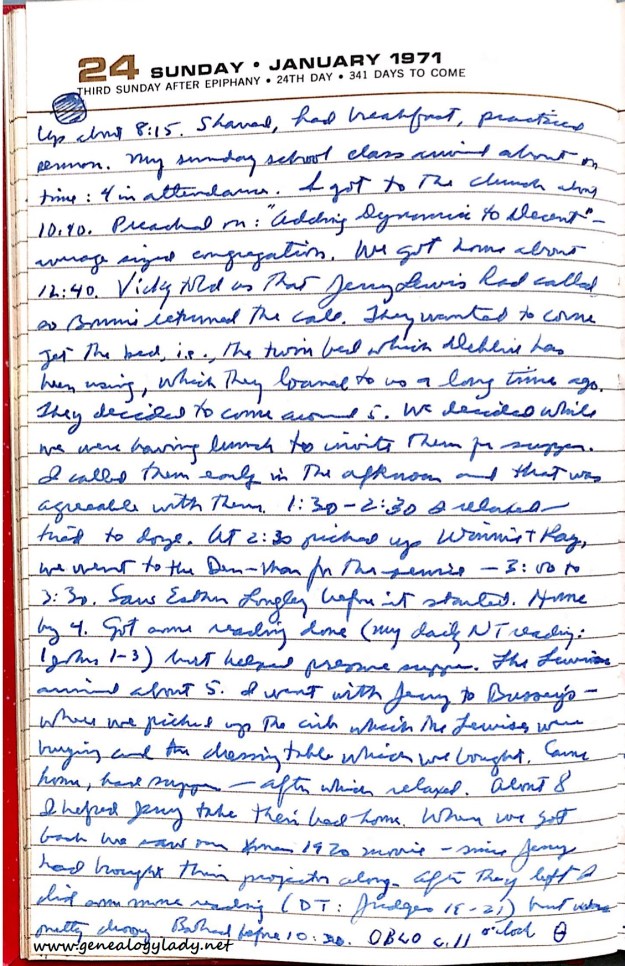 24 SUNDAY • JANUARY 1971
THIRD SUNDAY AFTER EPIPHANY • 24TH DAY • 341 DAYS TO COME
Up about 8:15. Shaved, had breakfast, practiced
sermon. My sunday school class arrived about on
time: 4 in attendance. I got to the church along
10:40. Preached on: "Adding Dynamic to Decent" –
average sized congregation. We got home about
12:40. Vicky told us that Jerry Lewis had called
so Bonnie returned the call. They wanted to come
get the bed, i.e., the twin bed which Debbie has
been using, which they loaned to us a long time ago.
They decided to come around 5. We decided while
we were having lunch to invite them for supper.
I called them early in the afternoon and that was
agreeable with them. 1:30–2:30 I relaxed –
tried to doze. At 2:30 picked up Winnie + Kay,
we went to the Den-Mar for the service – 3:00 to
3:30. Saw Esther Longley before it started. Home
by 4. Got some reading done (my daily NT reading:
1 John 1-3) but helped prepare supper. The Lewises
arrived about 5. I went with Jerry to Bussey's –
where we picked up the crib which the Lewises were
buying and the dressing table which we bought. Came
home, had supper – after which relaxed. About 8
I helped Jerry take their bed home. When we got
back we saw our Xmas 1970 movie – since Jerry
had brought their projector along. After they left I
did some more reading (DT: Judges 18-21) but was
pretty drowsy. Bathed before 10:30. OBLO c. 11 o'clock
www.genealogylady.net